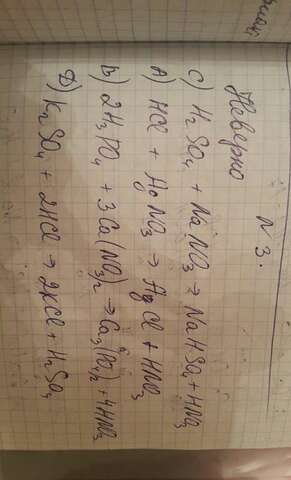 N 3.
Неверно
C) H₂SO₄ + NaNO₃ → NaHSO₄ + HNO₃
A) HCl + AgNO₃ → AgCl + HNO₃
B) 2H₃PO₄ + 3Ca(NO₃)₂ → Ca₃(PO₄)₂ + 4HNO₃
D) K₂SO₄ + 2HCl → 2KCl + H₂SO₄